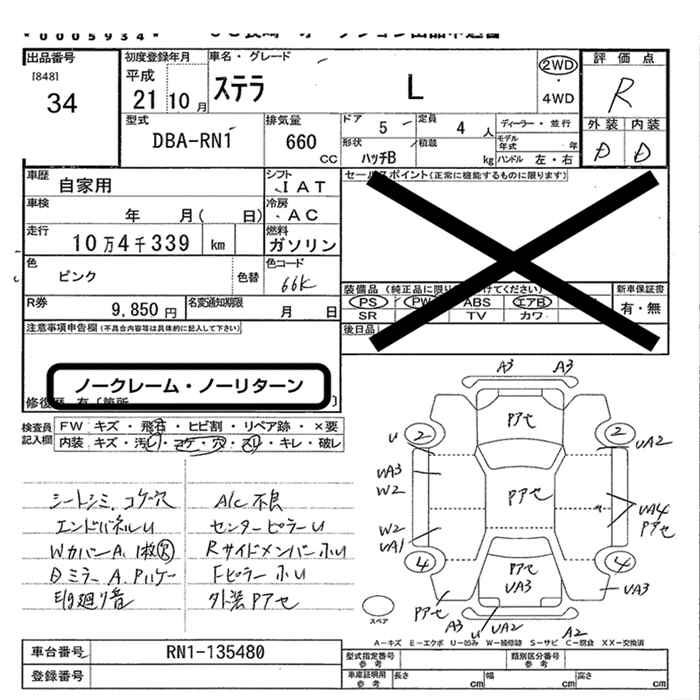 *0005934*
出品番号
[848]
34
初度登録年月
平成
21 10 月
車名・グレード
ステラ L
2WD
・
4WD
評価点
R
外装 内装
D D
型式
DBA-RN1
排気量
660
CC
ドア 5
定員 4 人
ディーラー・並行
モデル年式 年
形状 ハッチB
積載 kg
ハンドル 左・右
車歴
自家用
シフト
IAT
車検
年 月( 日)
冷房
AC
走行
10万4千339 km
燃料
ガソリン
色
ピンク
色替
色コード
66K
R券
9,850円
名変通知期限
月 日
セールスポイント(正常に機能するものに限ります)
装備品(純正品に限り けてください)
PS PW ABS エアB
SR TV カワ
新車保証書
有・無
後日品
注意事項申告欄(不具合内容等は具体的に記入して下さい)
ノークレーム・ノーリターン
修復歴 有〔箇所 〕
検査員記入欄
FW キズ・飛石・ヒビ割・リペア跡・×要
内装 キズ・汚レ・コゲ・穴・スレ・キレ・破レ
シートシミ、コゲ穴
エンドパネルU
Wカバー A. 1枚欠
Dミラー A. Pバゲー
E/g廻り音
A/C 不良
センターピラーU
Rサイドメンバー ホU
Fピラー ホU
外装Pアセ
A3 A3
Pアセ
U 2
2 UA2
UA3
W2
Pアセ
UA4
Pアセ
W2
UA1
4
4
Pアセ
UA3
UA3
Pアセ
A3 U UA2 A2
スペア
A−キズ E−エクボ U−凹み W−補修跡 S−サビ C−腐食 XX−交換済
車台番号
RN1-135480
登録番号
型式指定番号 参考
類別区分番号 参考
車庫証明用 参考
長さ cm
幅 cm
高さ cm